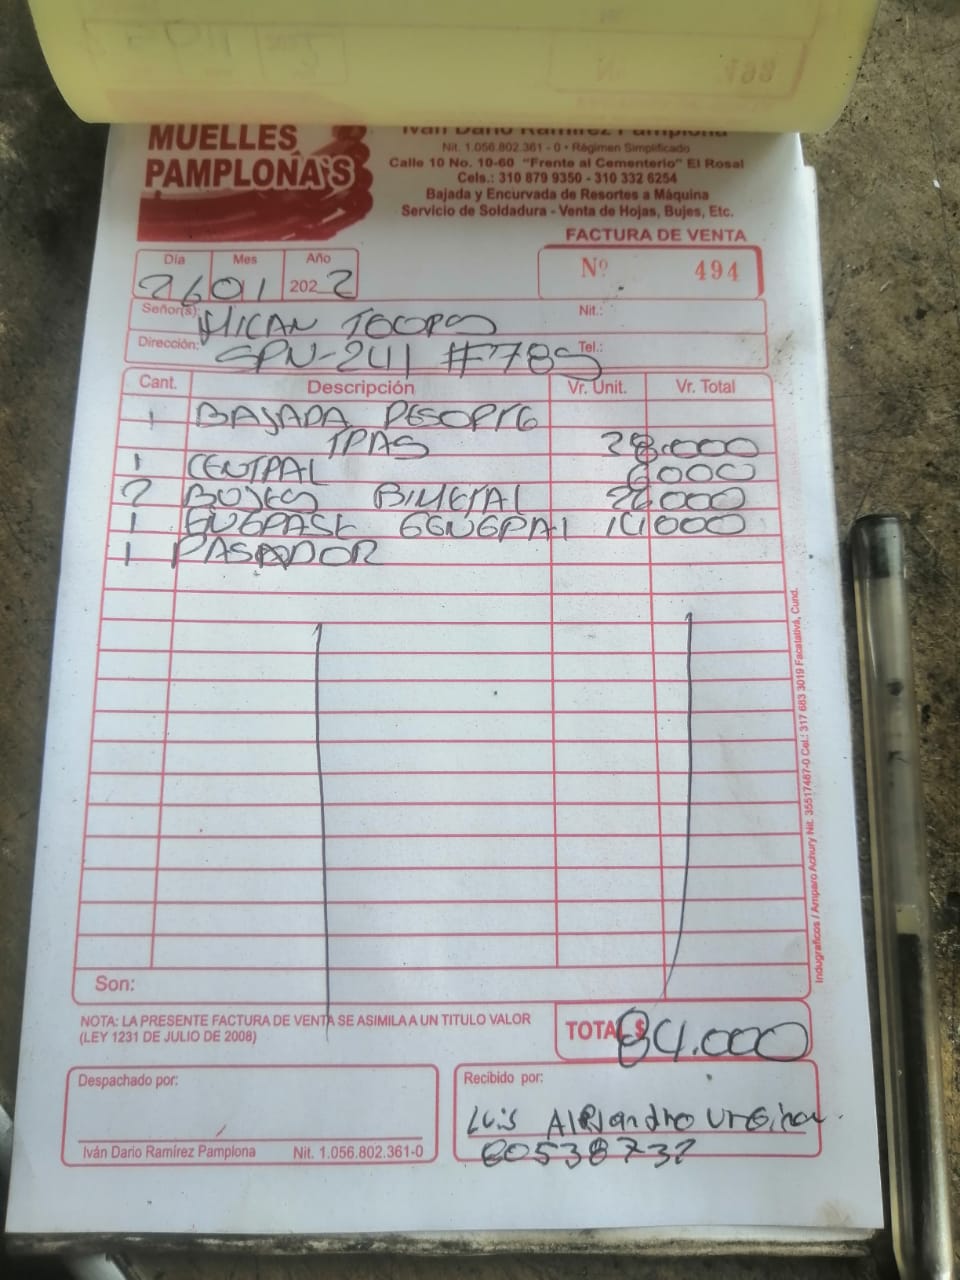 MUELLES
PAMPLONA'S
Iván Darío Ramírez Pamplona
Nit. 1.056.802.361 - 0 • Régimen Simplificado
Calle 10 No. 10-60 "Frente al Cementerio" El Rosal
Cels.: 310 879 9350 - 310 332 6254
Bajada y Encurvada de Resortes a Máquina
Servicio de Soldadura - Venta de Hojas, Bujes, Etc.
FACTURA DE VENTA
Nº 494
Día Mes Año
26 01 2022
Señor(s): MICAN Nit.:
Dirección: SPN-241 #785 Tel.:
Cant. Descripción Vr. Unit. Vr. Total
1 BAJADA RESORTE
TRAS 38.000
1 CENTRAL 6000
2 BUJES BIMETAL 26.000
1 ENGRASE GENERAL 14000
1 PASADOR
Son:
NOTA: LA PRESENTE FACTURA DE VENTA SE ASIMILA A UN TITULO VALOR
(LEY 1231 DE JULIO DE 2008)
TOTAL $ 84.000
Despachado por:
Iván Darío Ramírez Pamplona Nit. 1.056.802.361-0
Recibido por:
Luis Alejandro
80538732
Indugraficos / Amparo Achury Nit. 35517487-0 Cel.: 317 683 3019 Facatativá, Cund.